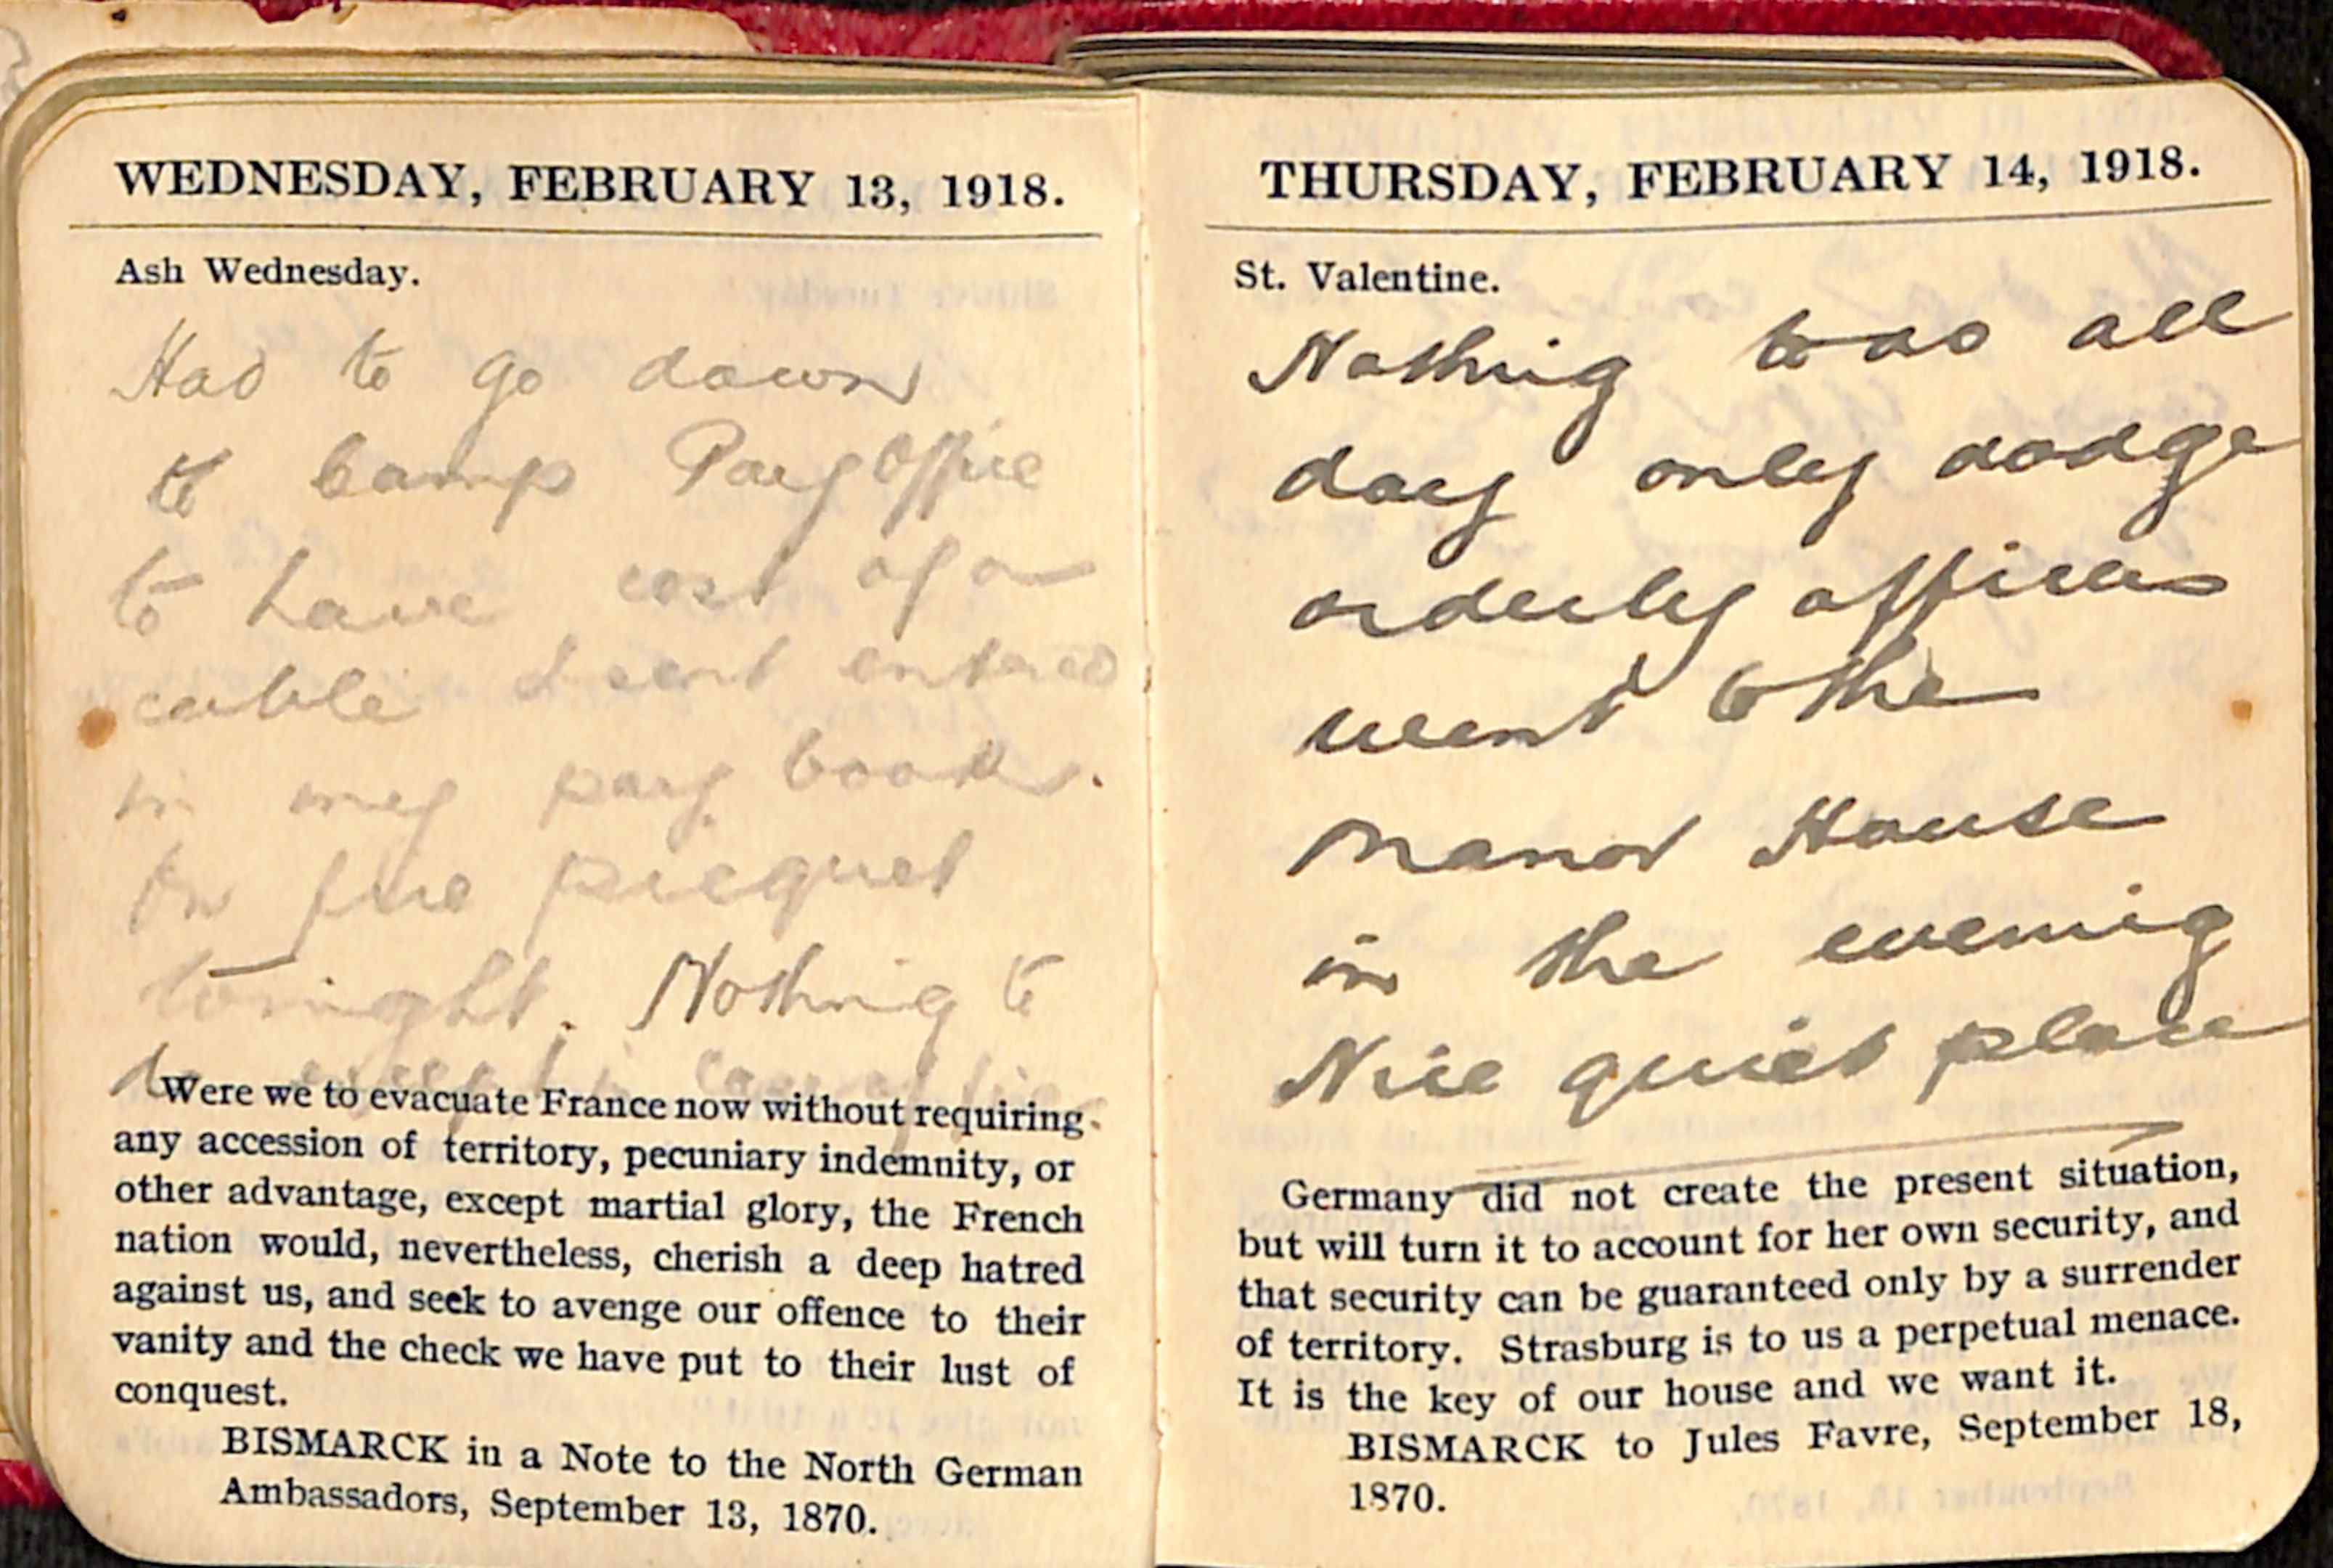 WEDNESDAY, FEBRUARY 13, 1918.
Ash Wednesday.
Had to go down
to Camp Pay Office
to have cost of a
cable I sent entered
in my pay book.
On fire picquet
tonight. Nothing to
do except in case of fire
Were we to evacuate France now without requiring
any accession of territory, pecuniary indemnity, or
other advantage, except martial glory, the French
nation would, nevertheless, cherish a deep hatred
against us, and seek to avenge our offence to their
vanity and the check we have put to their lust of
conquest.
BISMARCK in a Note to the North German
Ambassadors, September 13, 1870.
THURSDAY, FEBRUARY 14, 1918.
St. Valentine.
Nothing to do all
day only dodge
orderly officers
went to the
Manor House
in the evening
Nice quiet place
Germany did not create the present situation,
but will turn it to account for her own security, and
that security can be guaranteed only by a surrender
of territory. Strasburg is to us a perpetual menace.
It is the key of our house and we want it.
BISMARCK to Jules Favre, September 18,
1870.